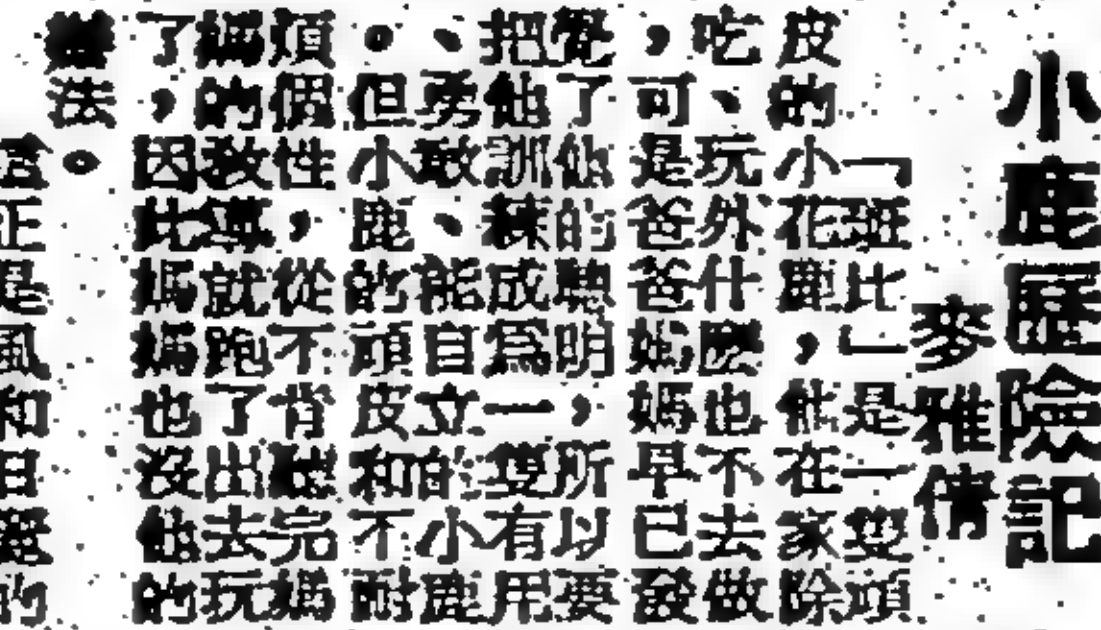 小鹿歷險記
麥雅倩
「班比」是一隻頑
皮的小花鹿,他在家除
吃、玩外什麼也不去做
,可是爸爸媽媽早已發
覺了他的聰明,所以要
把他訓練成為一隻有用
、勇敢、能自立的小鹿
。但小鹿的頑皮和不耐
煩個性,從不肯聽完媽
媽的教導,就跑了出去玩
了,因此媽媽也沒他的
辦法。
正是風和日麗的